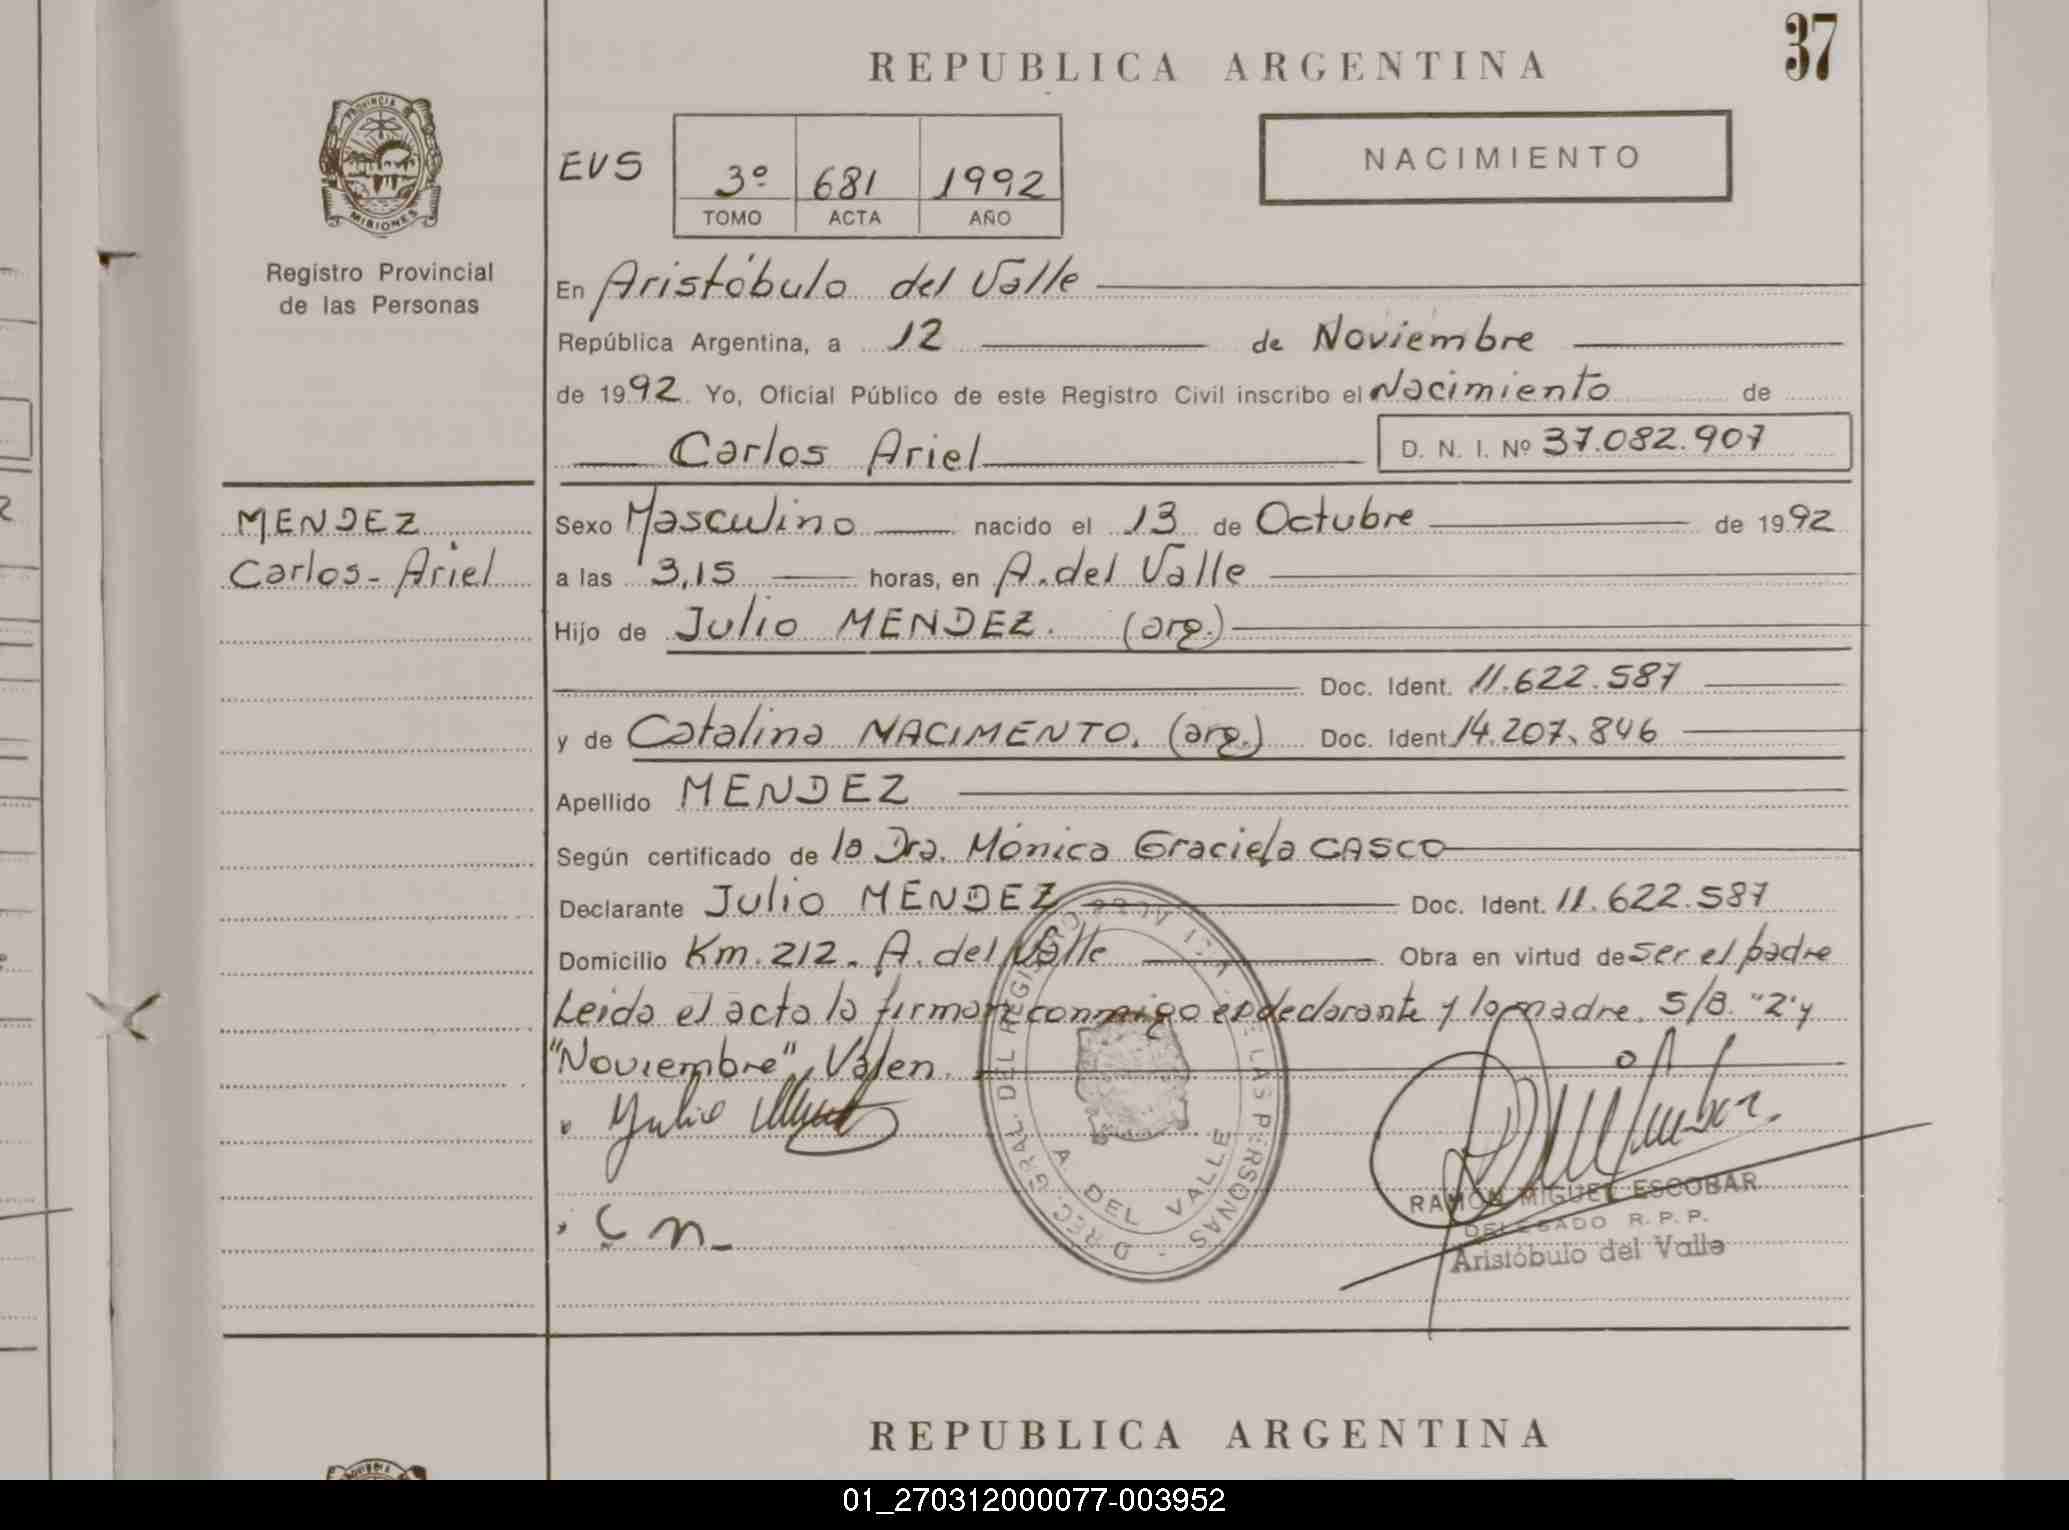 37
REPUBLICA ARGENTINA
PROVINCIA DE MISIONES
Registro Provincial
de las Personas
EVS
3º 681 1992
TOMO ACTA AÑO
NACIMIENTO
En Aristóbulo del Valle
República Argentina, a 12 de Noviembre
de 1992. Yo, Oficial Público de este Registro Civil inscribo el Nacimiento de
Carlos Ariel D. N. I. Nº 37.082.907
MENDEZ
Carlos- Ariel
Sexo Masculino nacido el 13 de Octubre de 1992
a las 3,15 horas, en A. del Valle
Hijo de Julio MENDEZ. (arg.)
Doc. Ident. 11.622.587
y de Catalina NACIMENTO. (arg.) Doc. Ident. 14.207.846
Apellido MENDEZ
Según certificado de la Dra. Mónica Graciela CASCO
Declarante Julio MENDEZ Doc. Ident. 11.622.587
Domicilio Km. 212. A. del Valle Obra en virtud de ser el padre
Leida el acta la firman conmigo el declarante y la madre. S/B. "2" y
"Noviembre" Valen.
Julio
C n
A. DEL VALLE
RAMÓN MIGUEL ESCOBAR
DELEGADO R. P. P.
Aristóbulo del Valle
REPUBLICA ARGENTINA
01_270312000077-003952